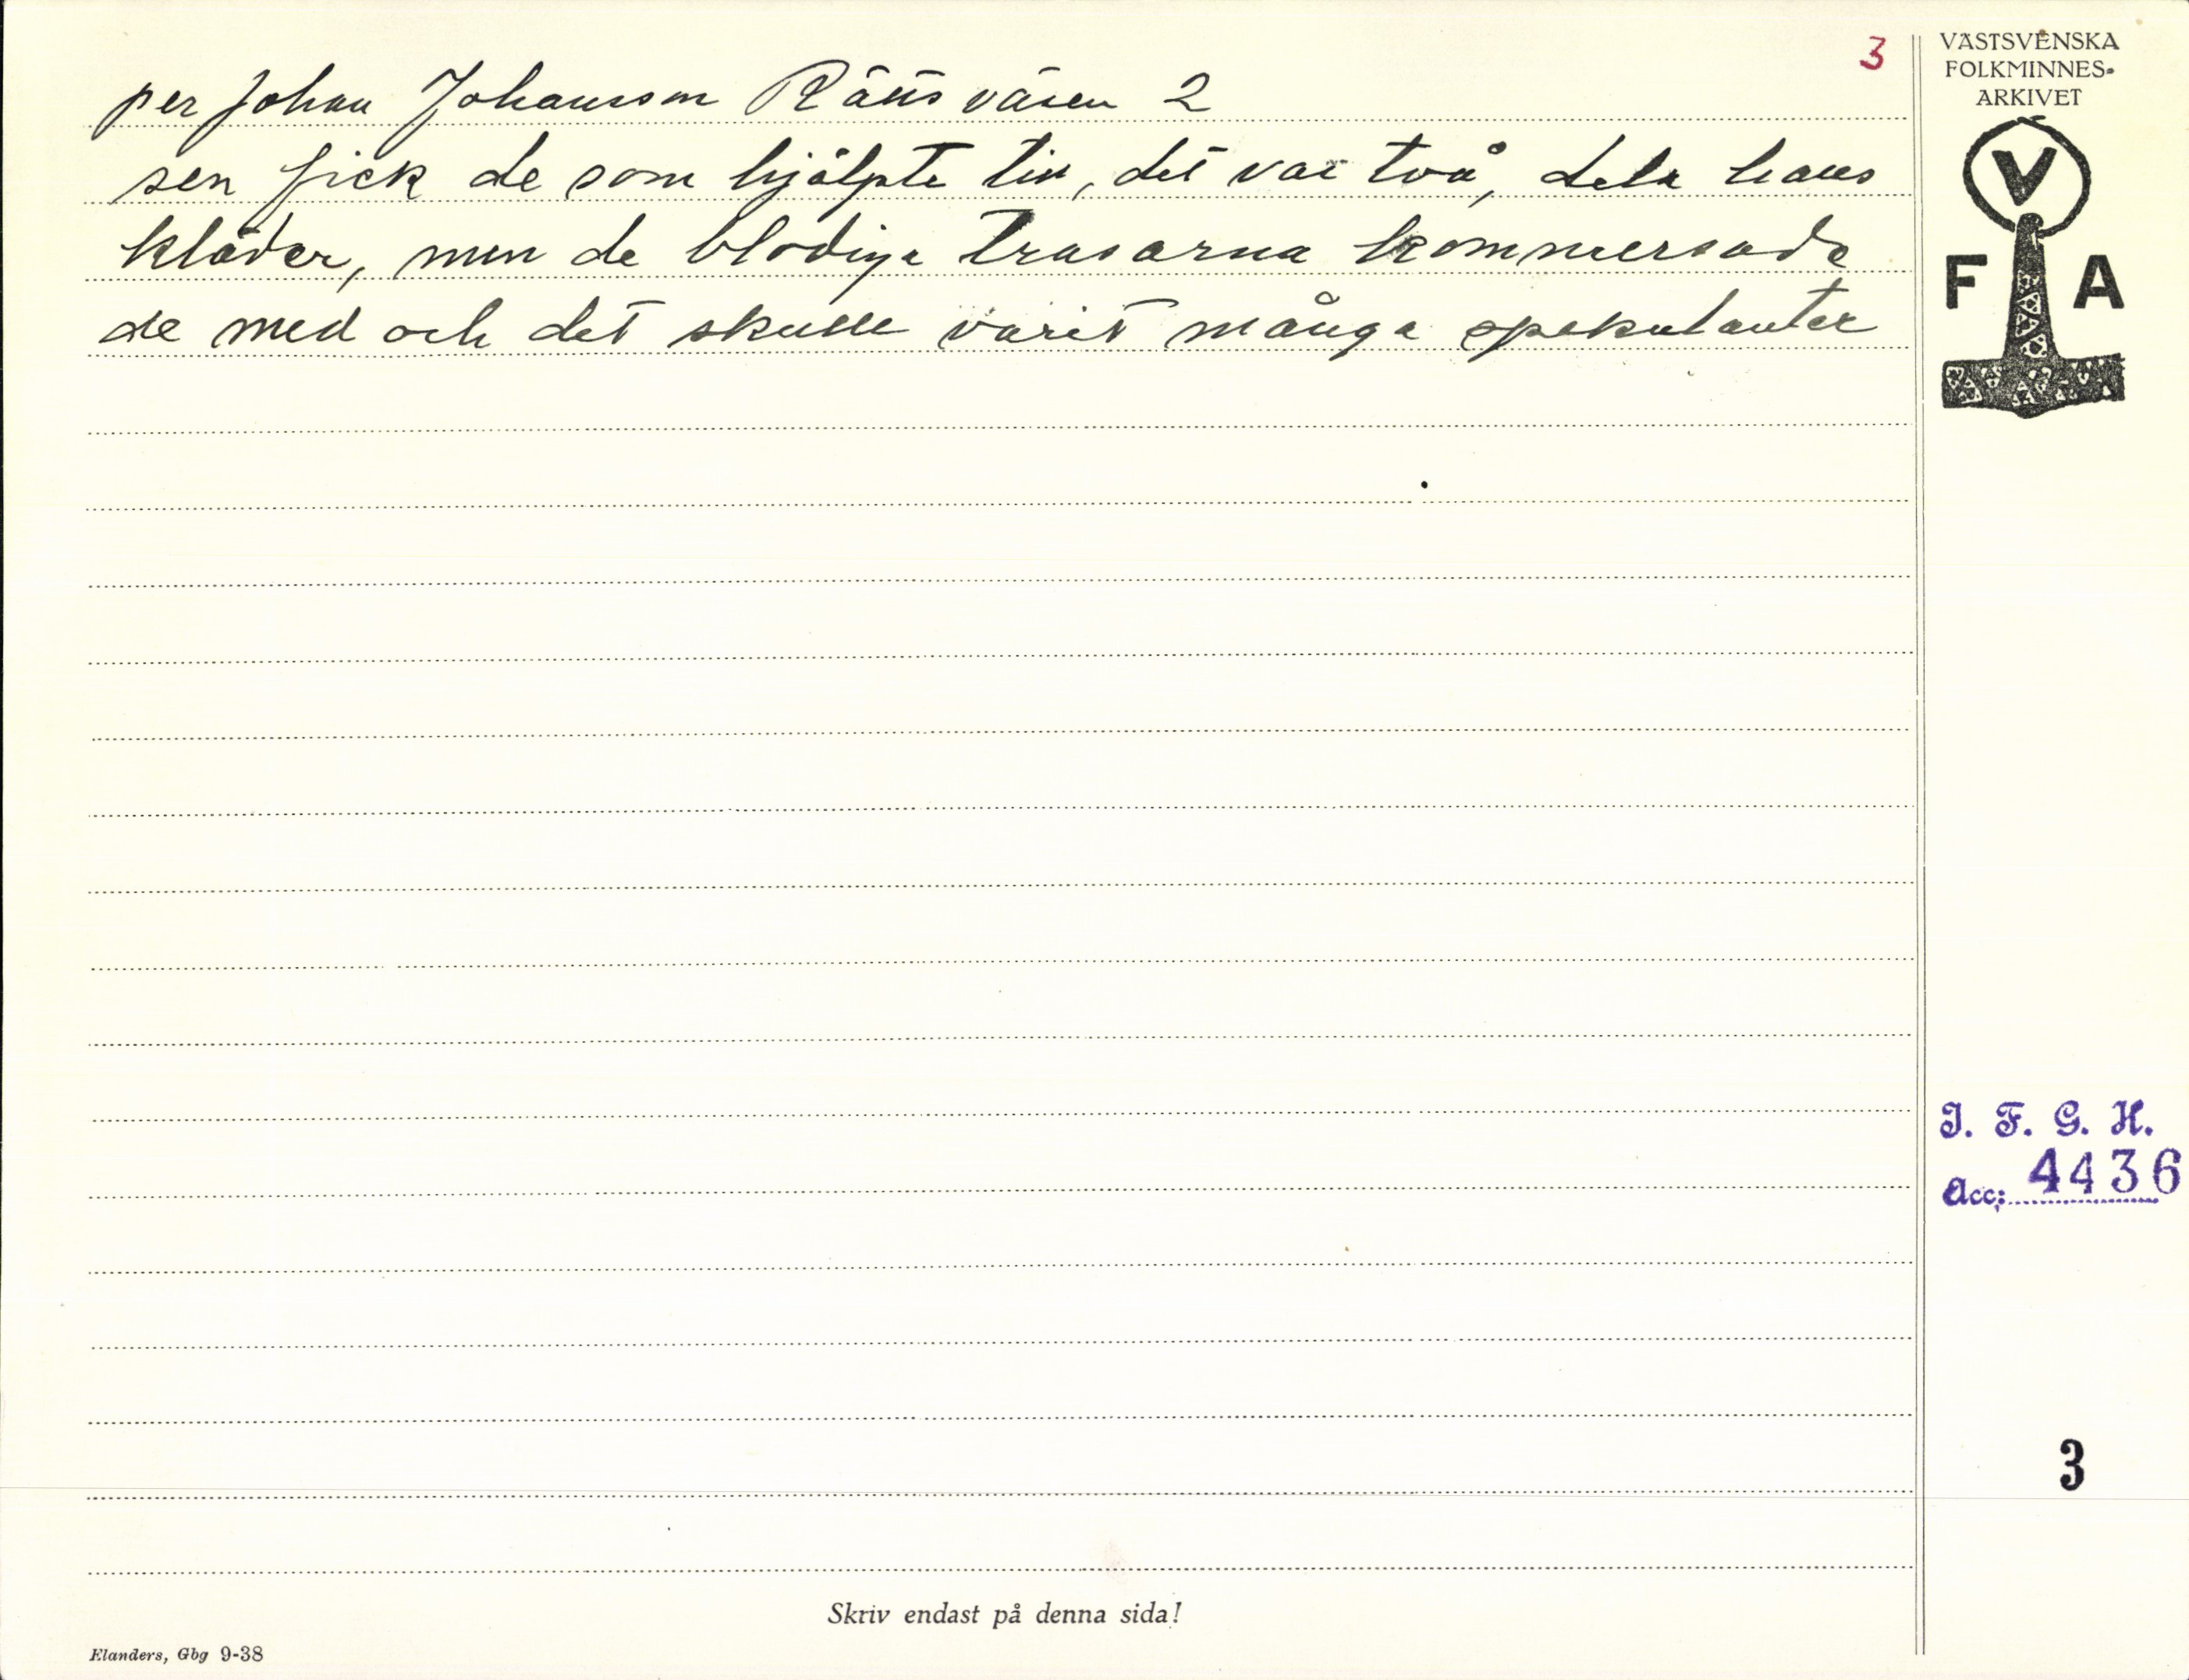 3
per Johan Johansson Rättsväsen 2
sen fick de som hjälpte till, det var två, dela hans
kläder, men de blodiga trasorna kommersade
de med och det skulle varit många spekulanter
VÄSTSVENSKA
FOLKMINNES-
ARKIVET
V
F A
I. F. G. H.
Acc: 4436
3
Skriv endast på denna sida!
Elanders, Gbg 9-38